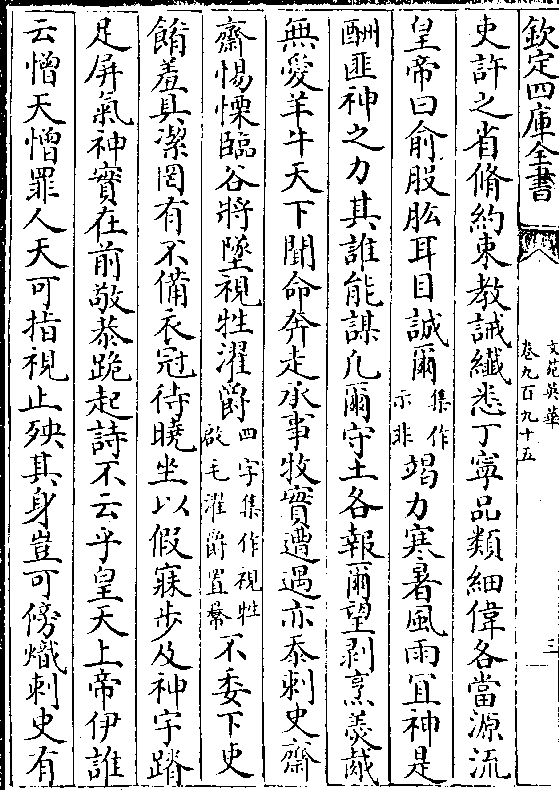 欽定四庫全書
文苑英華
卷九百九十五
三
吏許之省脩約束教誡纖悉丁寧品類細偉各當源流
皇帝曰俞股肱耳目誠爾集作示非竭力寒暑風雨冝神是
酬匪神之力其誰能謀凡爾守土各報爾望剥烹羮胾
無愛羊牛天下聞命奔走承事牧實遭遇亦忝刺史齋
齋惕慄臨谷將墜視牲濯爵四字集作視牲啟毛濯爵置羃不委下吏
餚羞具潔罔有不備衣冠待曉坐以假寐步及神宇踏
足屏氣神實在前敬恭跪起詩不云乎皇天上帝伊誰
云憎天憎罪人天可指視止殃其身豈可傍熾刺史有